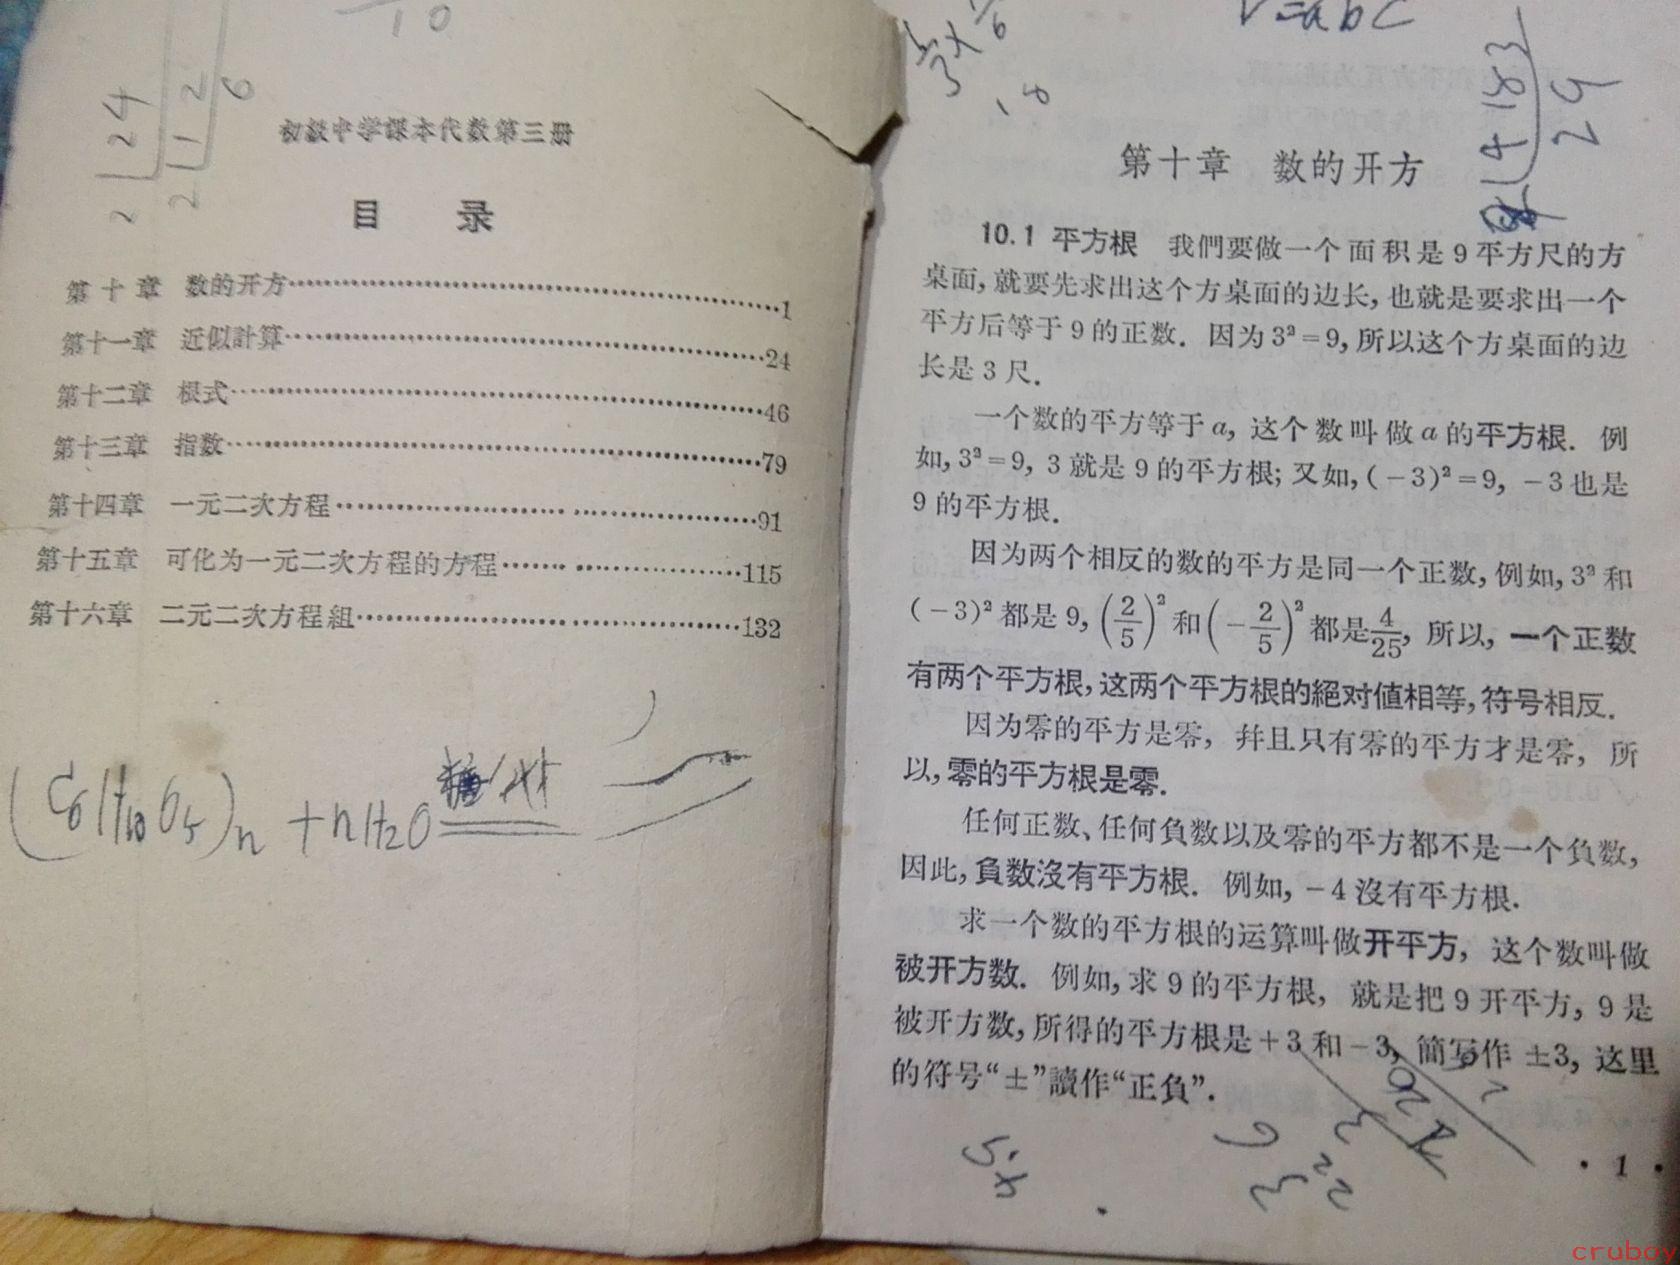 初級中学課本代数第三册
目 录
第十章 数的开方……1
第十一章 近似計算……24
第十二章 根式……46
第十三章 指数……79
第十四章 一元二次方程……91
第十五章 可化为一元二次方程的方程……115
第十六章 二元二次方程組……132
(C6H10O5)n + nH2O
第十章 数的开方
10.1 平方根 我們要做一个面积是9平方尺的方
桌面,就要先求出这个方桌面的边长,也就是要求出一个
平方后等于9的正数. 因为3²=9,所以这个方桌面的边
长是3尺.
一个数的平方等于a, 这个数叫做a的平方根. 例
如,3²=9, 3就是9的平方根; 又如,(-3)²=9, -3也是
9的平方根.
因为两个相反的数的平方是同一个正数,例如,3²和
(-3)²都是9,(2/5)²和(-2/5)²都是4/25, 所以, 一个正数
有两个平方根,这两个平方根的絕对値相等,符号相反.
因为零的平方是零, 幷且只有零的平方才是零, 所
以,零的平方根是零.
任何正数、任何負数以及零的平方都不是一个負数,
因此,負数沒有平方根. 例如, -4沒有平方根.
求一个数的平方根的运算叫做开平方, 这个数叫做
被开方数. 例如,求9的平方根, 就是把9开平方, 9是
被开方数,所得的平方根是+3和-3, 簡写作 ±3, 这里
的符号“±”讀作“正負”.
·1·
cruboy